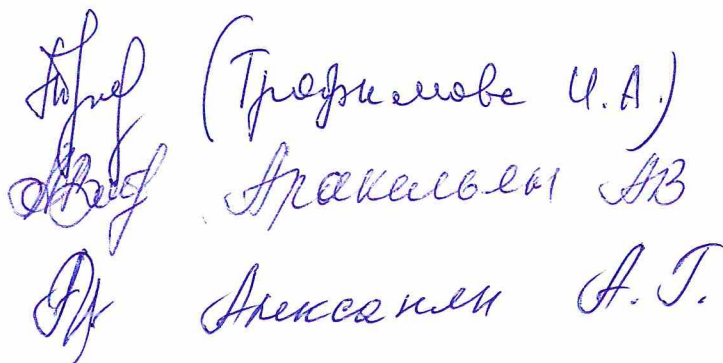 (Трофимова И.А.)
Аракельян АВ
Алексанян А.Г.